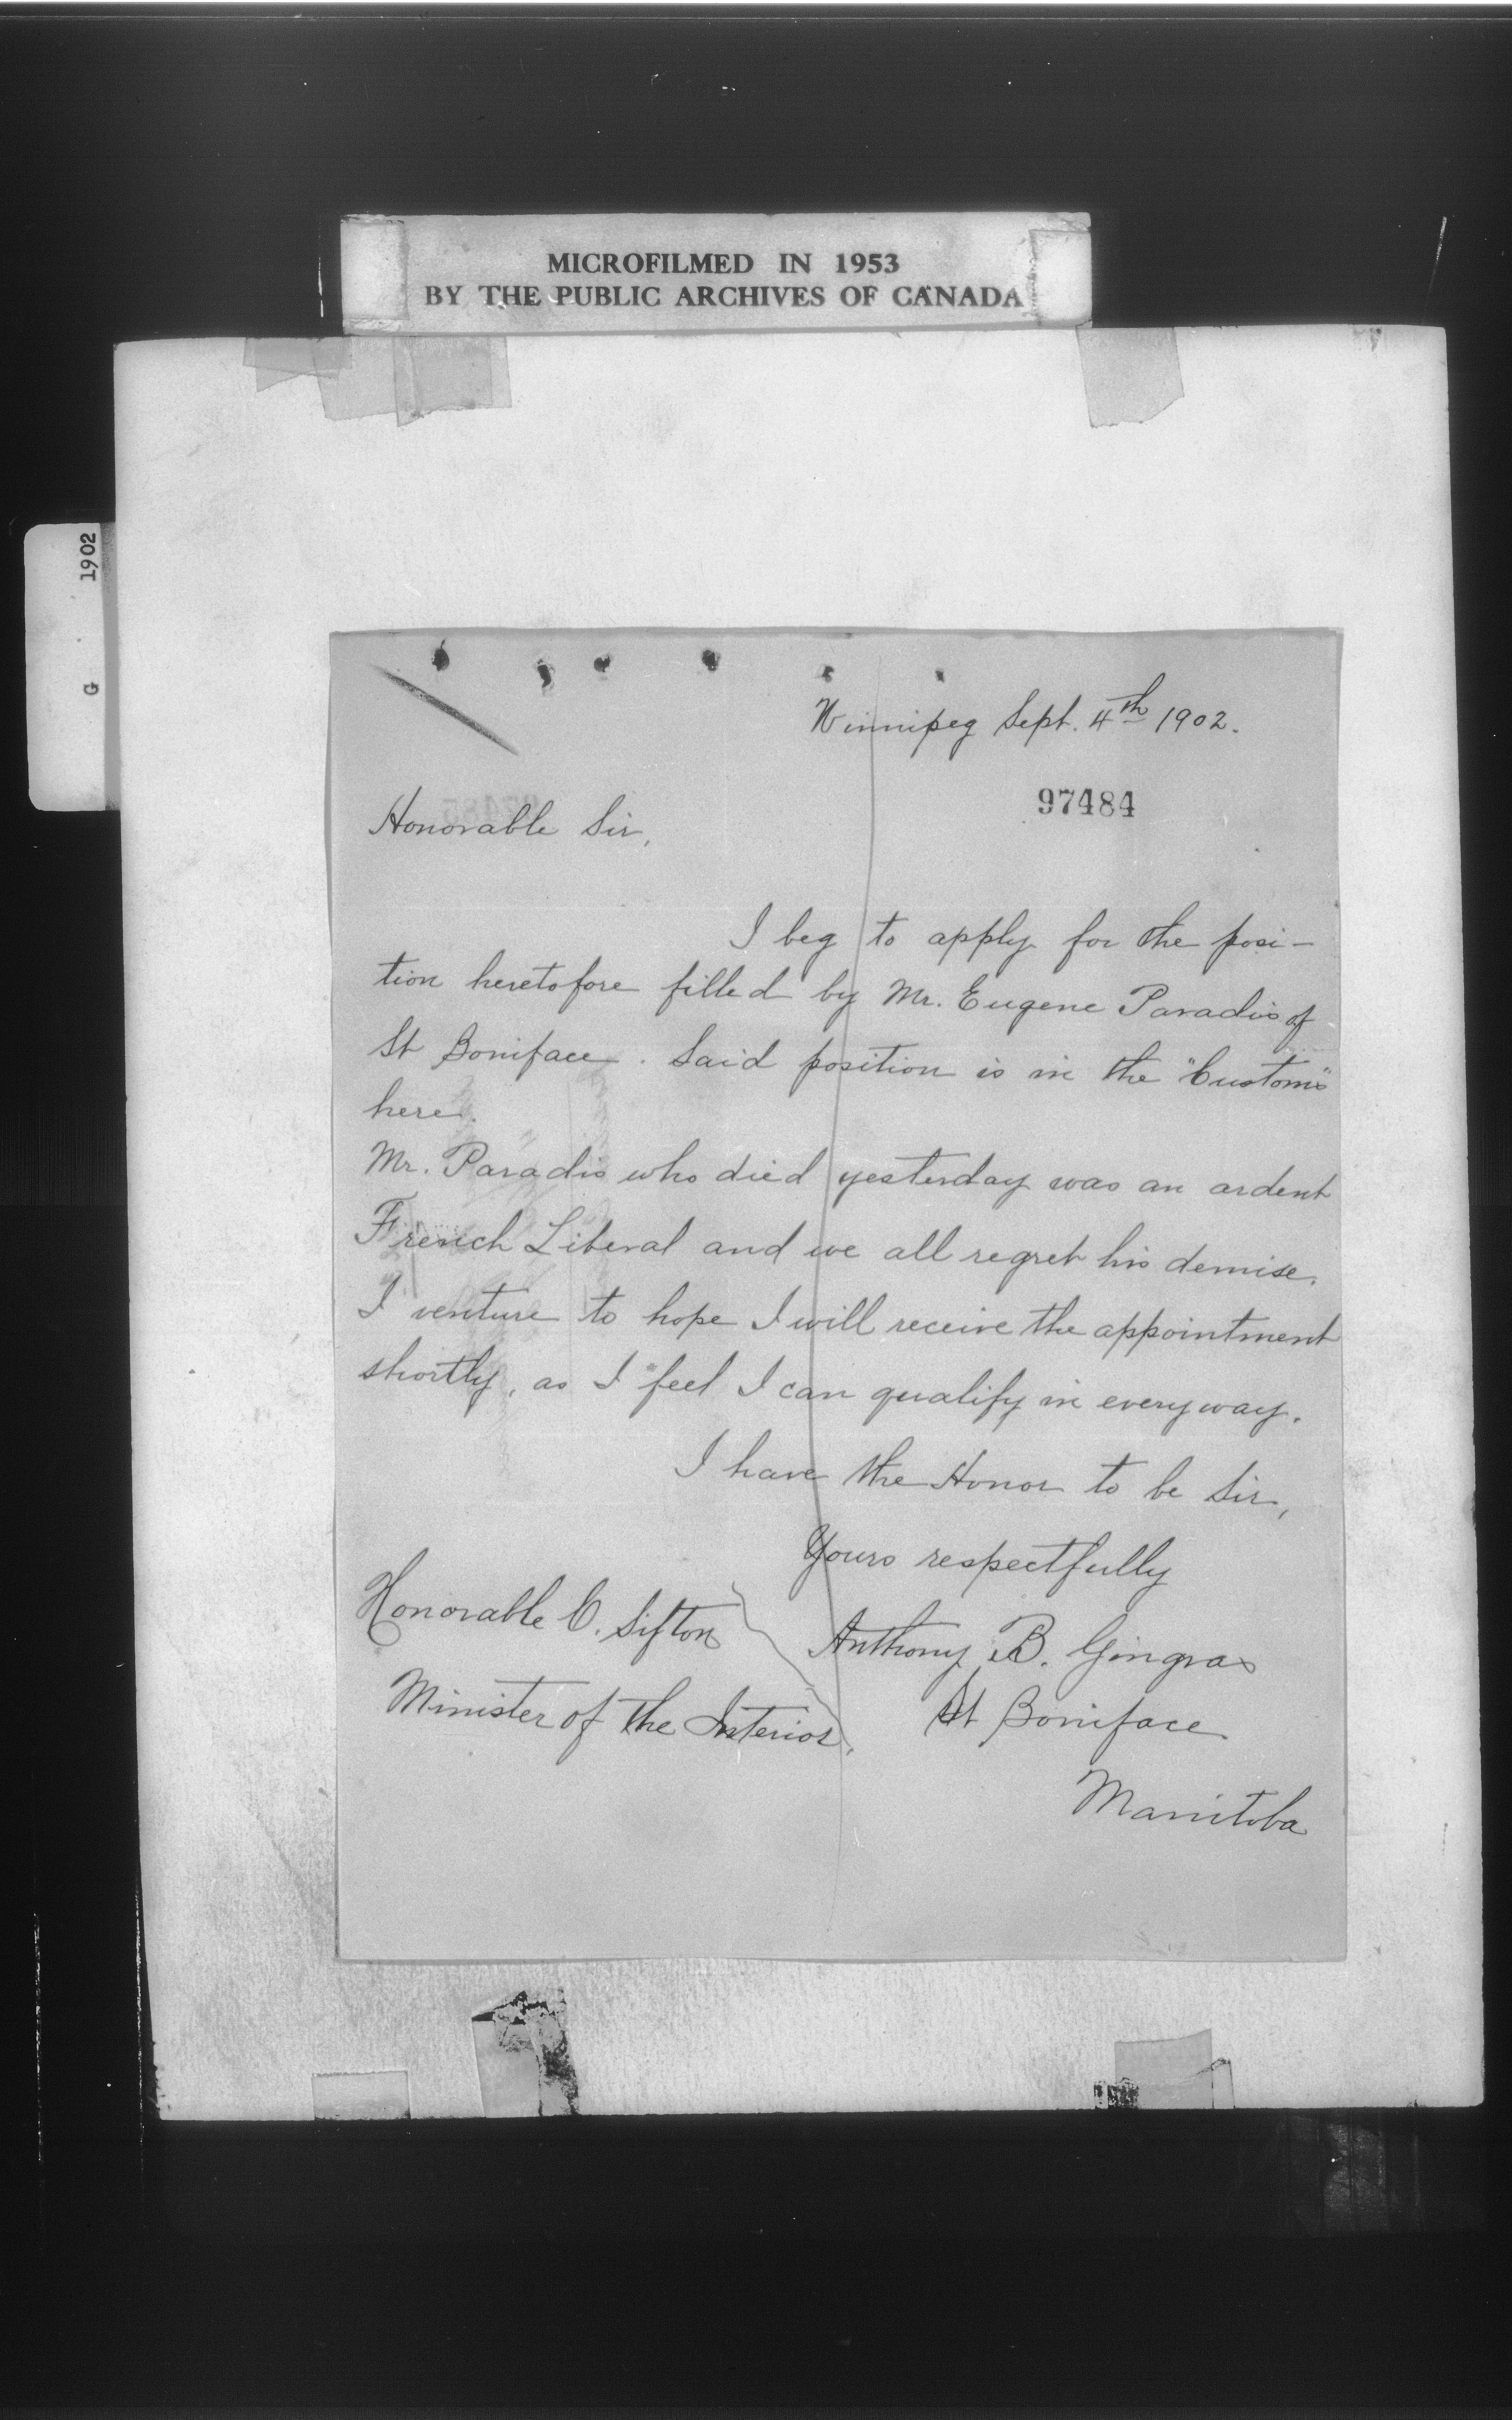 MICROFILMED IN 1953
BY THE PUBLIC ARCHIVES OF CANADA
1902
G
Winnipeg Sept. 4th 1902.
97484
Honorable Sir,
I beg to apply for the posi-
tion heretofore filled by Mr. Eugene Paradis of
St Boniface. Said position is in the "Customs"
here.
Mr. Paradis who died yesterday was an ardent
French Liberal and we all regret his demise.
I venture to hope I will receive the appointment
shortly, as I feel I can qualify in every way.
I have the Honor to be Sir,
Yours respectfully
Honorable C. Sifton
Anthony B. Gingras
Minister of the Interior,
St Boniface
Manitoba